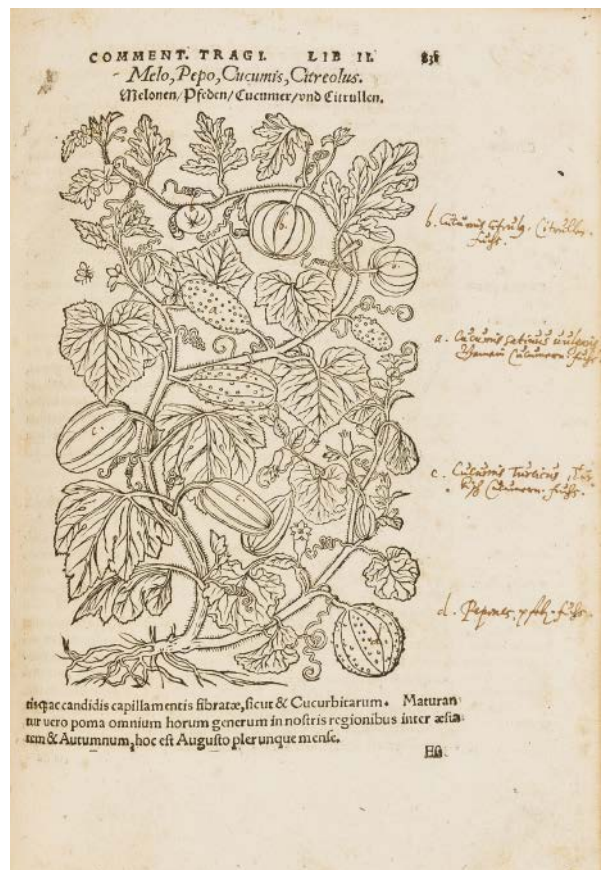 COMMENT. TRAGI. LIB II. 831
Melo, Pepo, Cucumis, Citreolus.
Melonen/Pfeden/Cucumer/vnd Citrullen.
b. Citrull.
fuchs.
a. Cucumis sativus vulgaris
Cucumern fuchs
c. Cucumis Turcicus
Cucumern. fuchs.
d. Pepones, pfeb. fuchs.
b.
a.
c.
d.
tisq́ae candidis capillamentis fibratæ, ſicut & Cucurbitarum. Maturan
tur uero poma omnium horum generum in noſtris regionibus inter æſta
tem & Autumnum, hoc eſt Auguſto plerunque menſe.